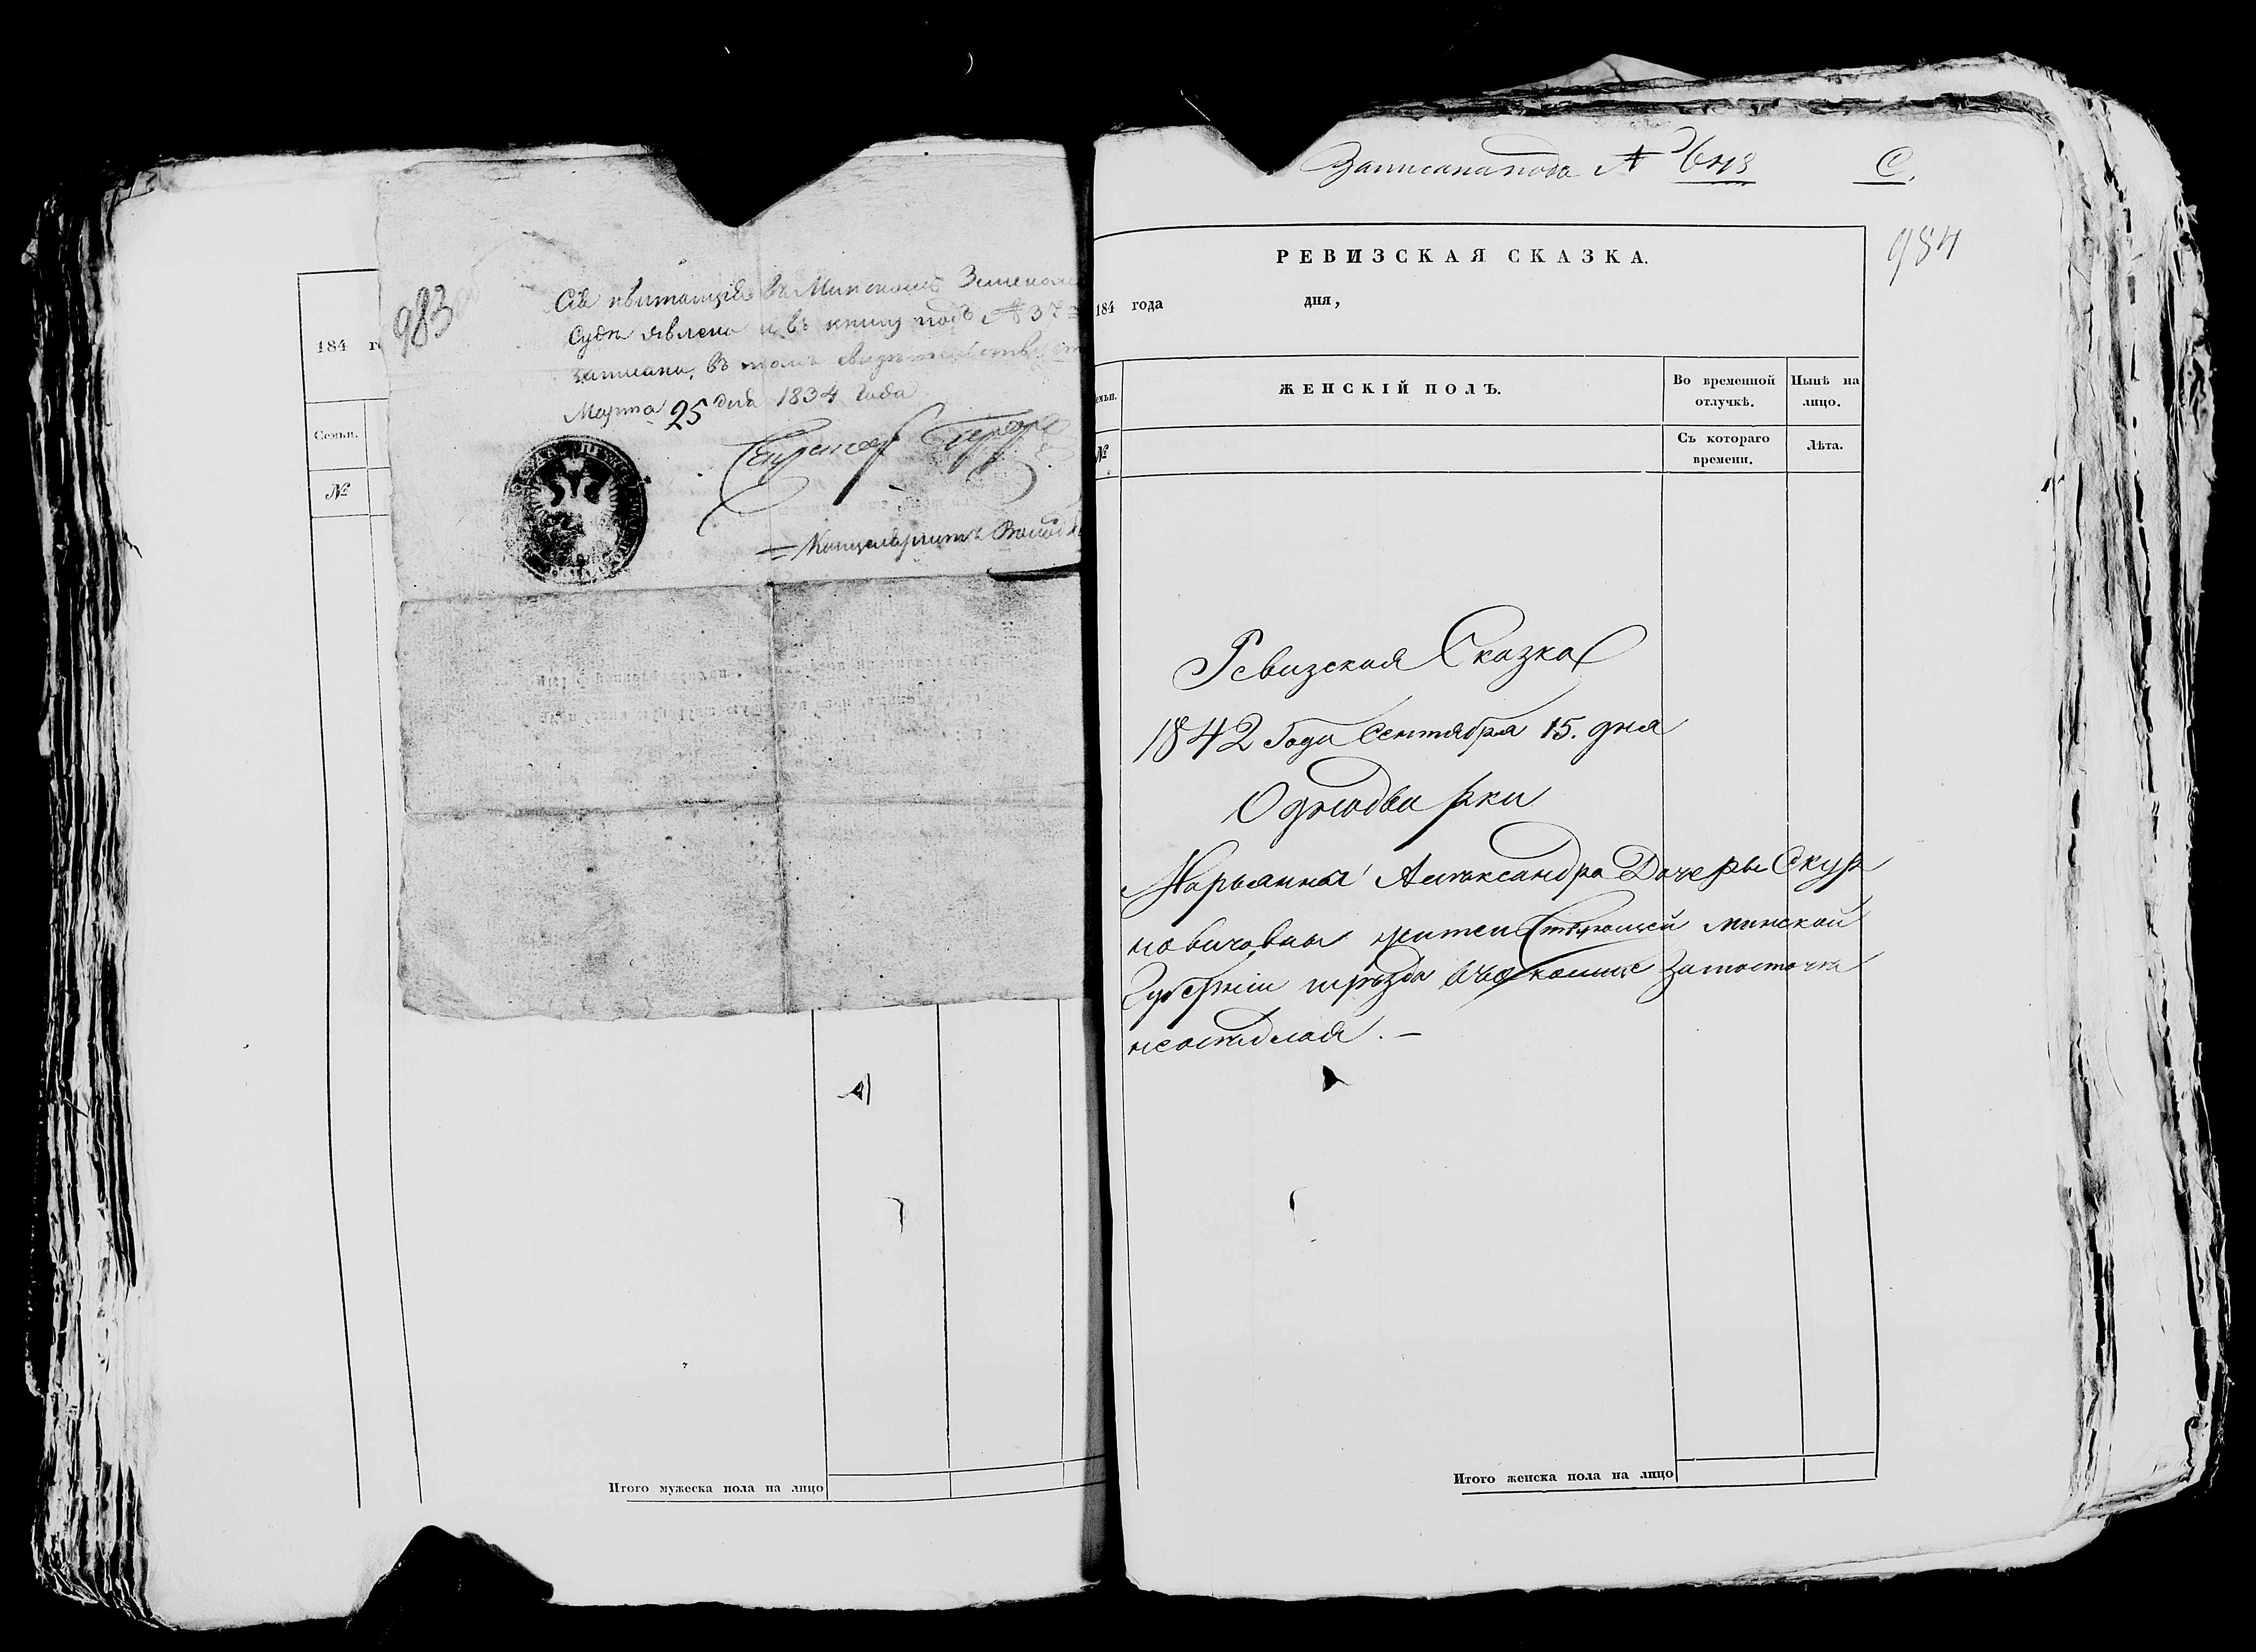 983
184 г
Семьи.
№
Сія квитанція въ Минскомъ Земском
Судѣ явлена и въ книгу подъ № 37
записана, въ томъ свидѣтельствует
Марта 25 дня 1834 года
Канцеляристъ
Итого мужеска пола на лицо
Записана подъ №
С.
984
РЕВИЗСКАЯ СКАЗКА.
184 года дня,
емьи. ЖЕНСКІЙ ПОЛЪ. Во временной отлучкѣ. Нынѣ на лицо.
№ Съ котораго времени. Лѣта.
Ревизская Сказка
1842 Года Сентября 15. дня
Однодворки
Марьянны Алѣксандра Дочеры Скур
новичовны жительствующей минской
Губерніи уѣзда въ околице Замосточка
неоседлая. —
Итого женска пола на лицо